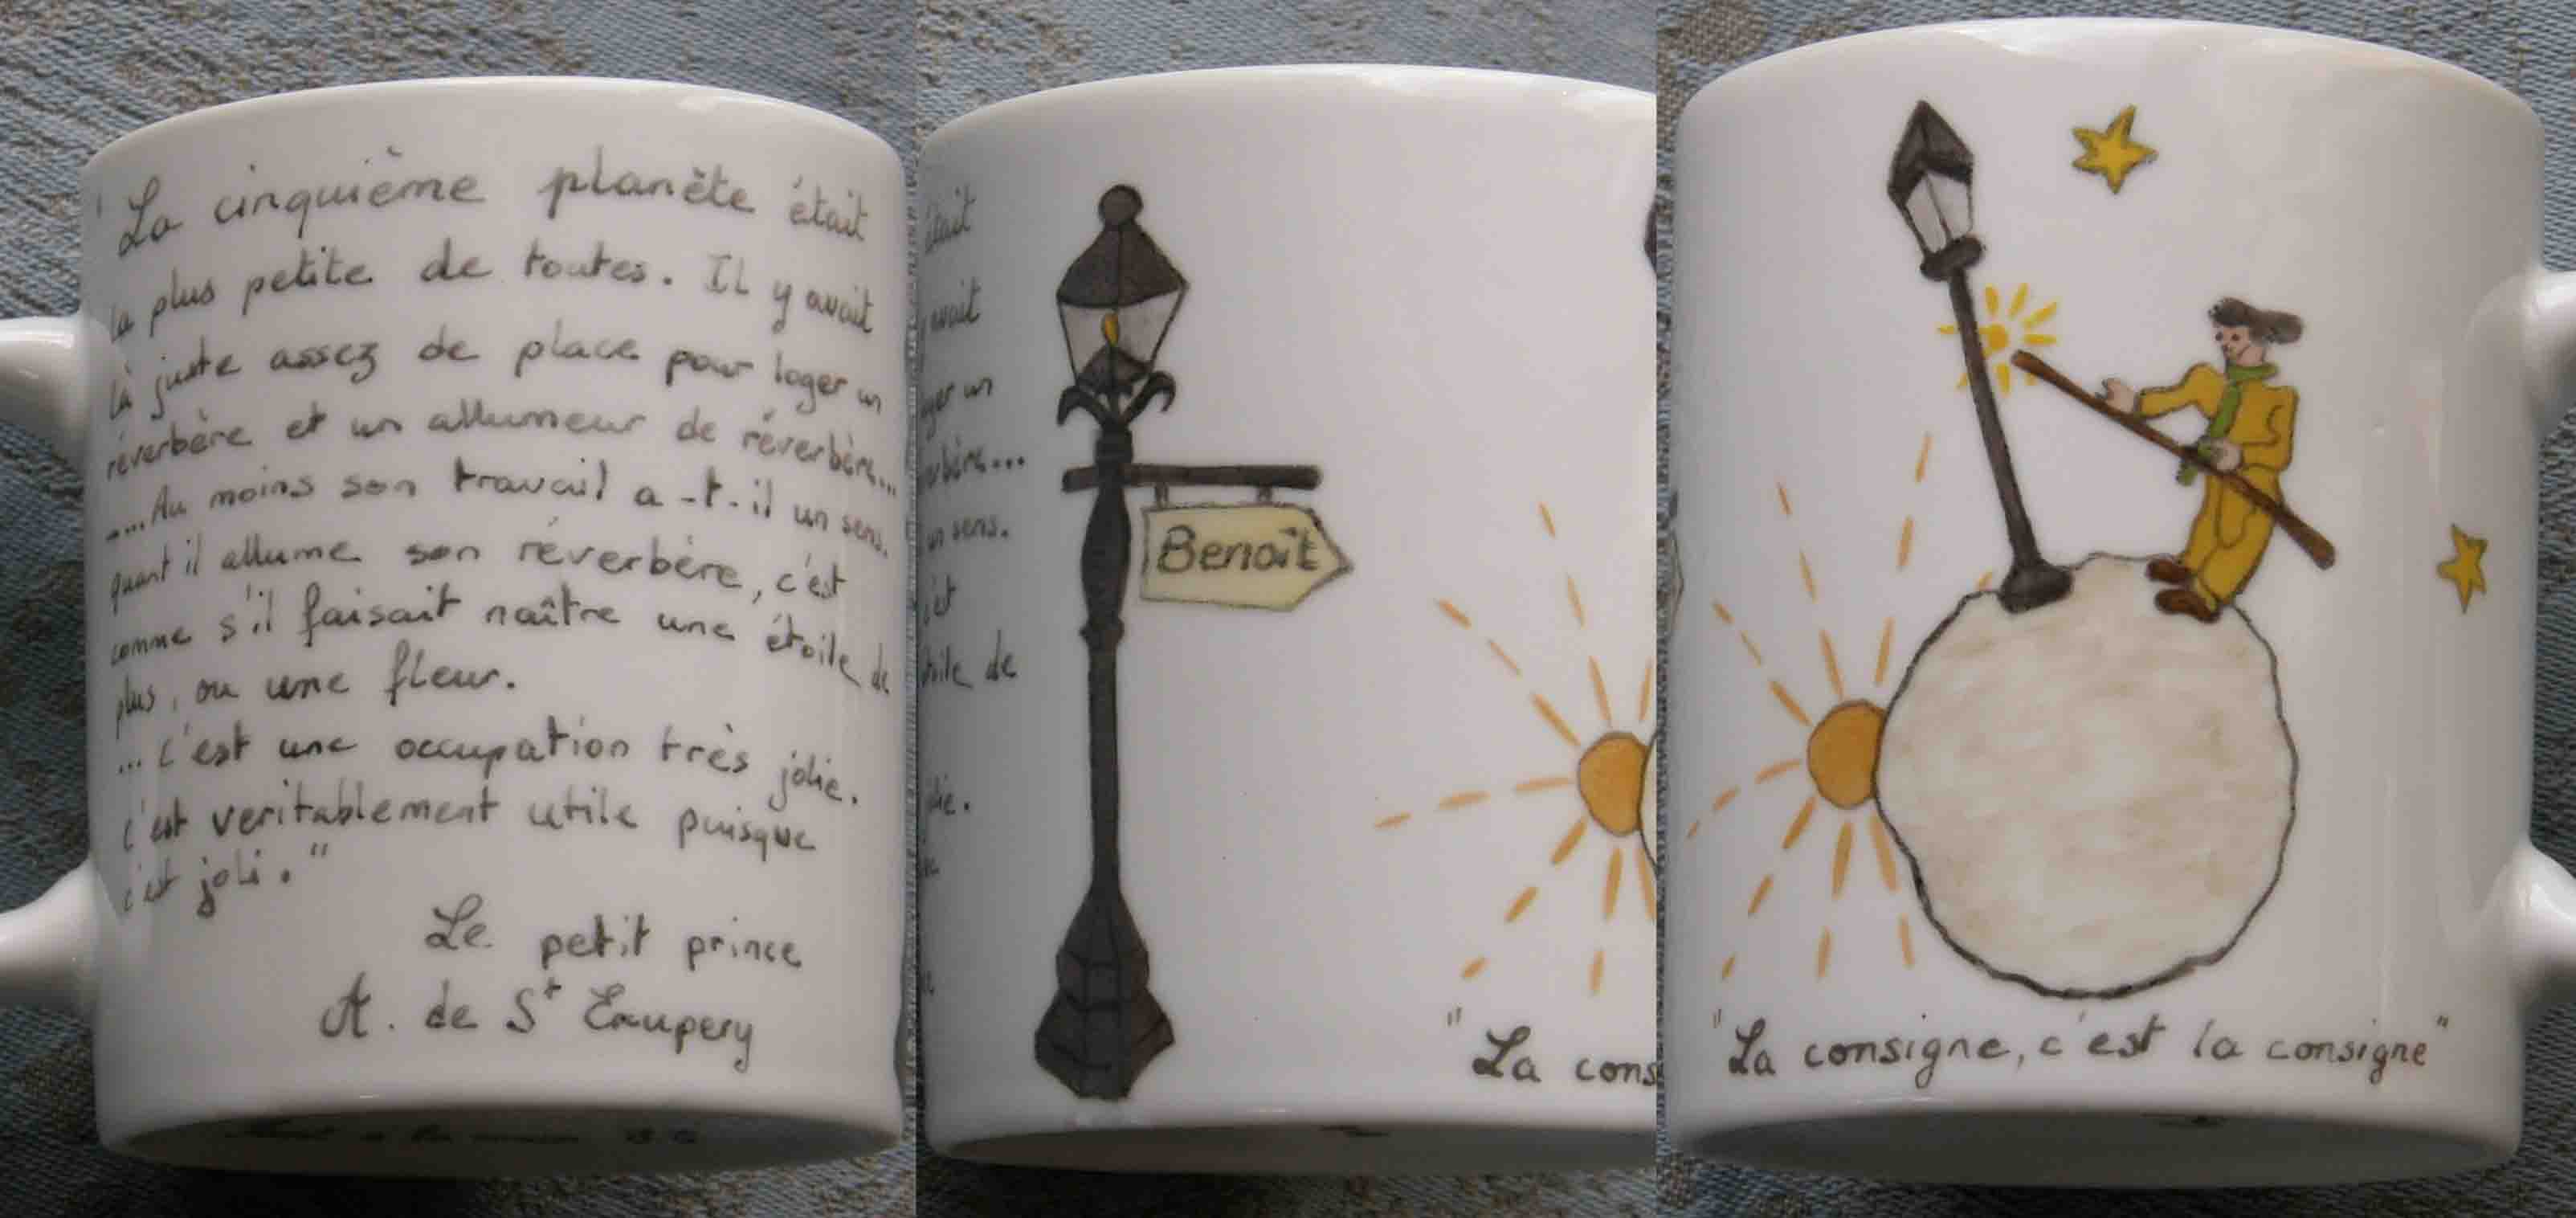 "La cinquième planète était
la plus petite de toutes. Il y avait
là juste assez de place pour loger un
réverbère et un allumeur de réverbère...
....Au moins son travail a-t-il un sens.
quant il allume son réverbère, c'est
comme s'il faisait naître une étoile de
plus, ou une fleur.
...c'est une occupation très jolie.
c'est veritablement utile puisque
c'est joli."
Le petit prince
A. de St Exupery
était
avait
un
un sens.
c'est
étoile de
jolie.
Benoît
"La cons
"La consigne, c'est la consigne"